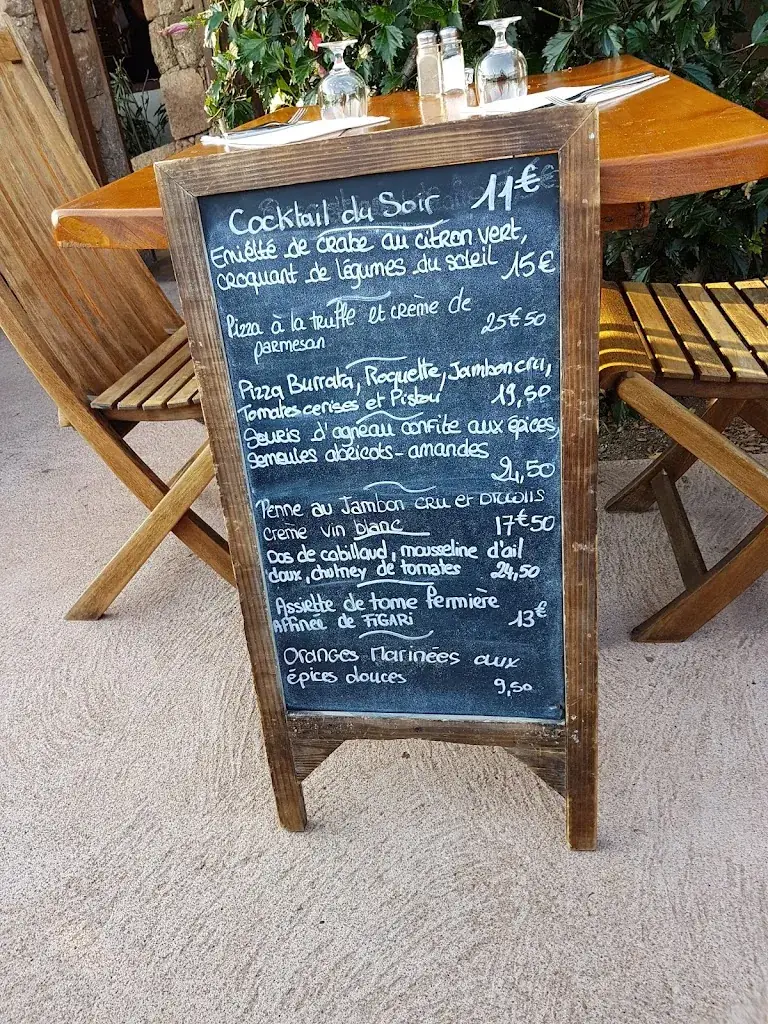 Cocktail du Soir 11€
Emiétté de crabe au citron vert,
croquant de légumes du soleil 15€
Pizza à la truffe et crème de
parmesan 25€50
Pizza Burrata, Roquette, Jambon cru,
Tomates cerises et Pistou 19,50
Souris d'agneau confite aux épices,
Semoules abricots-amandes
24,50
Penne au Jambon cru et
crème vin blanc 17€50
Dos de cabillaud, mousseline d'ail
doux, chutney de tomates 24,50
Assiette de tome fermière
Affinée de FIGARI 13€
Oranges Marinées aux
épices douces 9,50